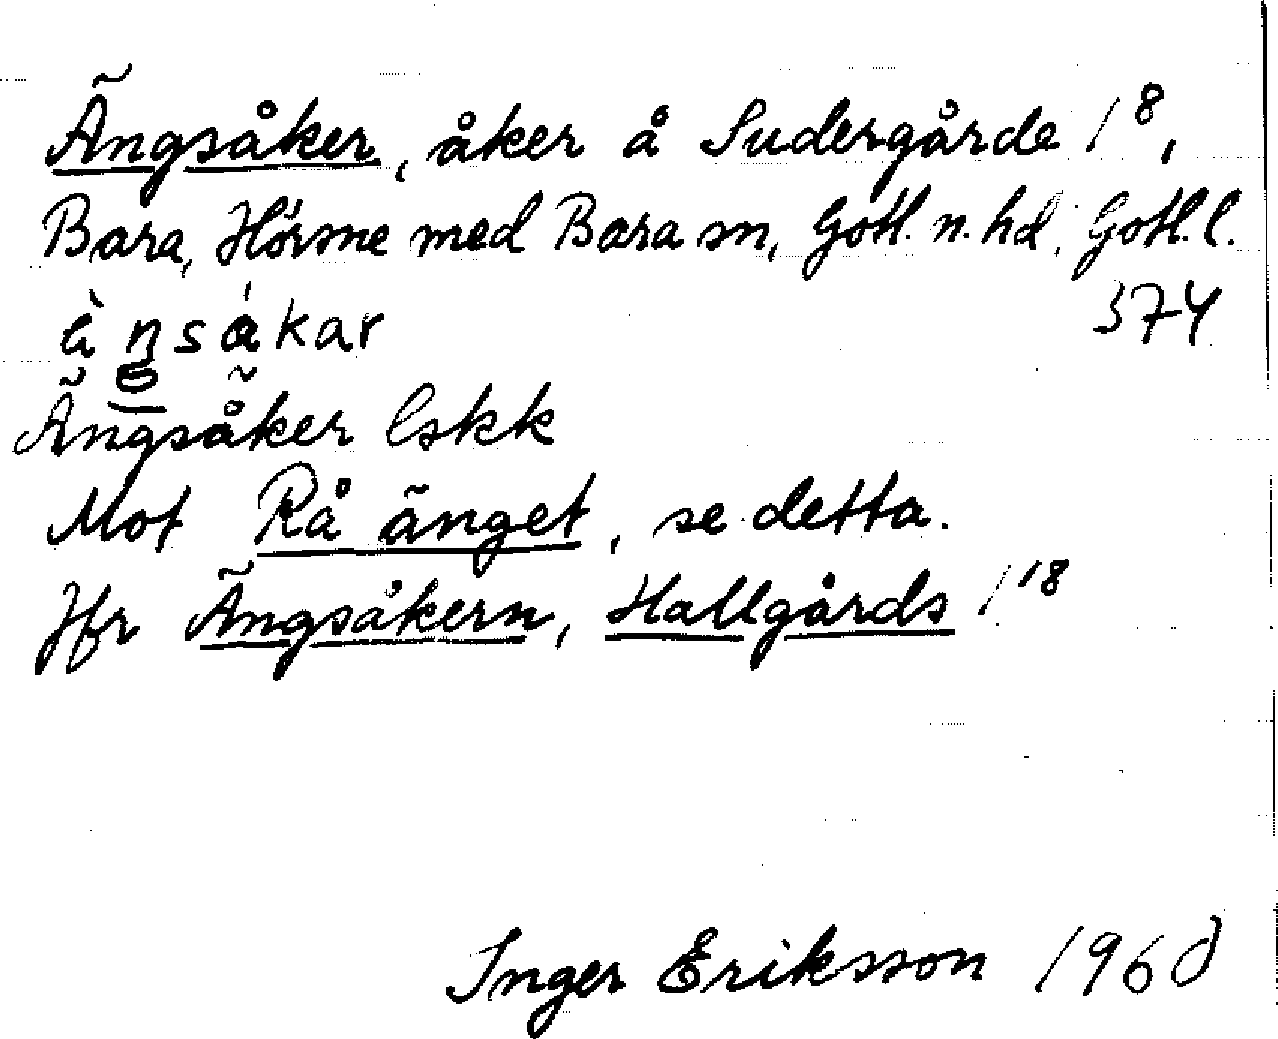 Ängsåker, åker å Sudergårde 1⁸,
Bara, Hörsne med Bara sn, Gotl. n. hd, Gotl. l.
374
Ängsåker lskk
Mot Rå änget, se detta.
Jfr Ängsåkern, Hallgårds 1¹⁸
Inger Eriksson 1960